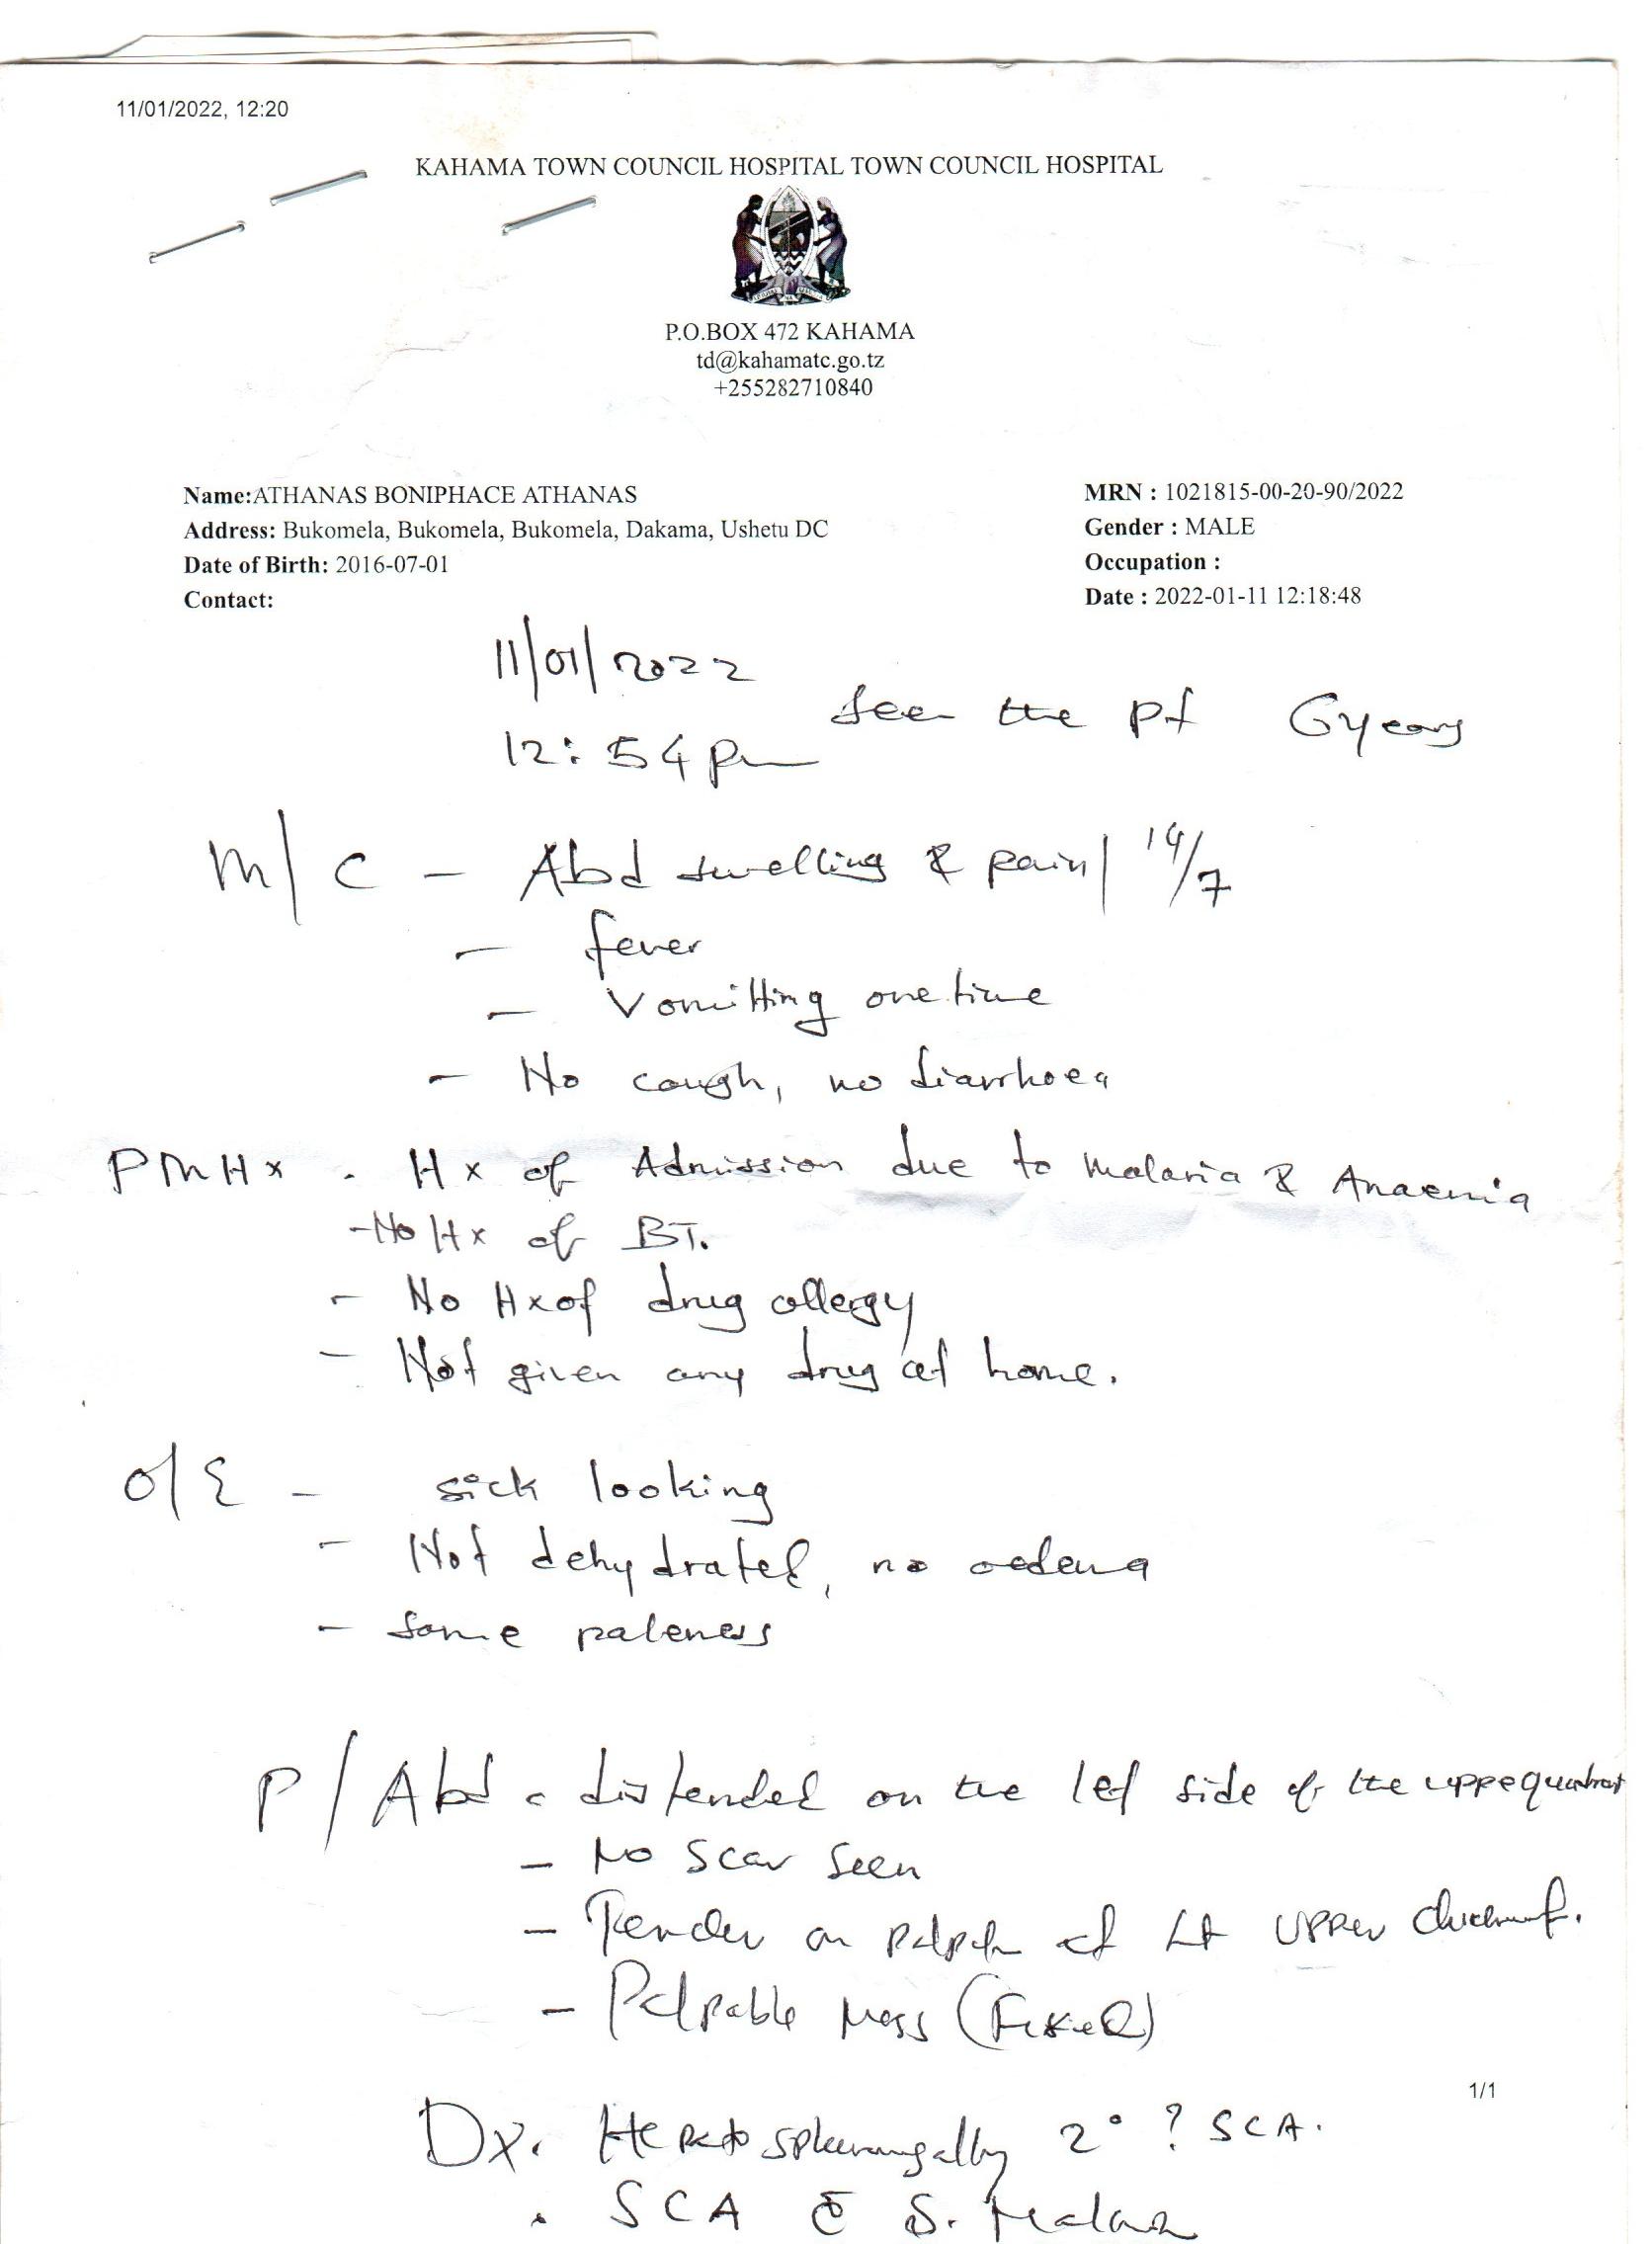 11/01/2022, 12:20
KAHAMA TOWN COUNCIL HOSPITAL TOWN COUNCIL HOSPITAL
P.O.BOX 472 KAHAMA
td@kahamatc.go.tz
+255282710840
Name:ATHANAS BONIPHACE ATHANAS
Address: Bukomela, Bukomela, Bukomela, Dakama, Ushetu DC
Date of Birth: 2016-07-01
Contact:
MRN : 1021815-00-20-90/2022
Gender : MALE
Occupation :
Date : 2022-01-11 12:18:48
11/01/2022
12:54pm
seen the pt 6years
M/C - Abd swelling & pain/ 14/7
- fever
- Vomitting one time
- No cough, no diarrhoea
PMHx . Hx of Admission due to Malaria & Anaemia
- No Hx of BT.
- No Hx of drug allergy
- Not given any drug at home.
O/E - sick looking
- Not dehydrated, no oedema
- Some paleness
P/Abd - distended on the lef side of the uppe quadrat
- No scar seen
- Tender on at Lt upper
- Palpable Mass (Fixed)
1/1
Dx. 2° ? SCA.
. SCA c̄ S. Malaria